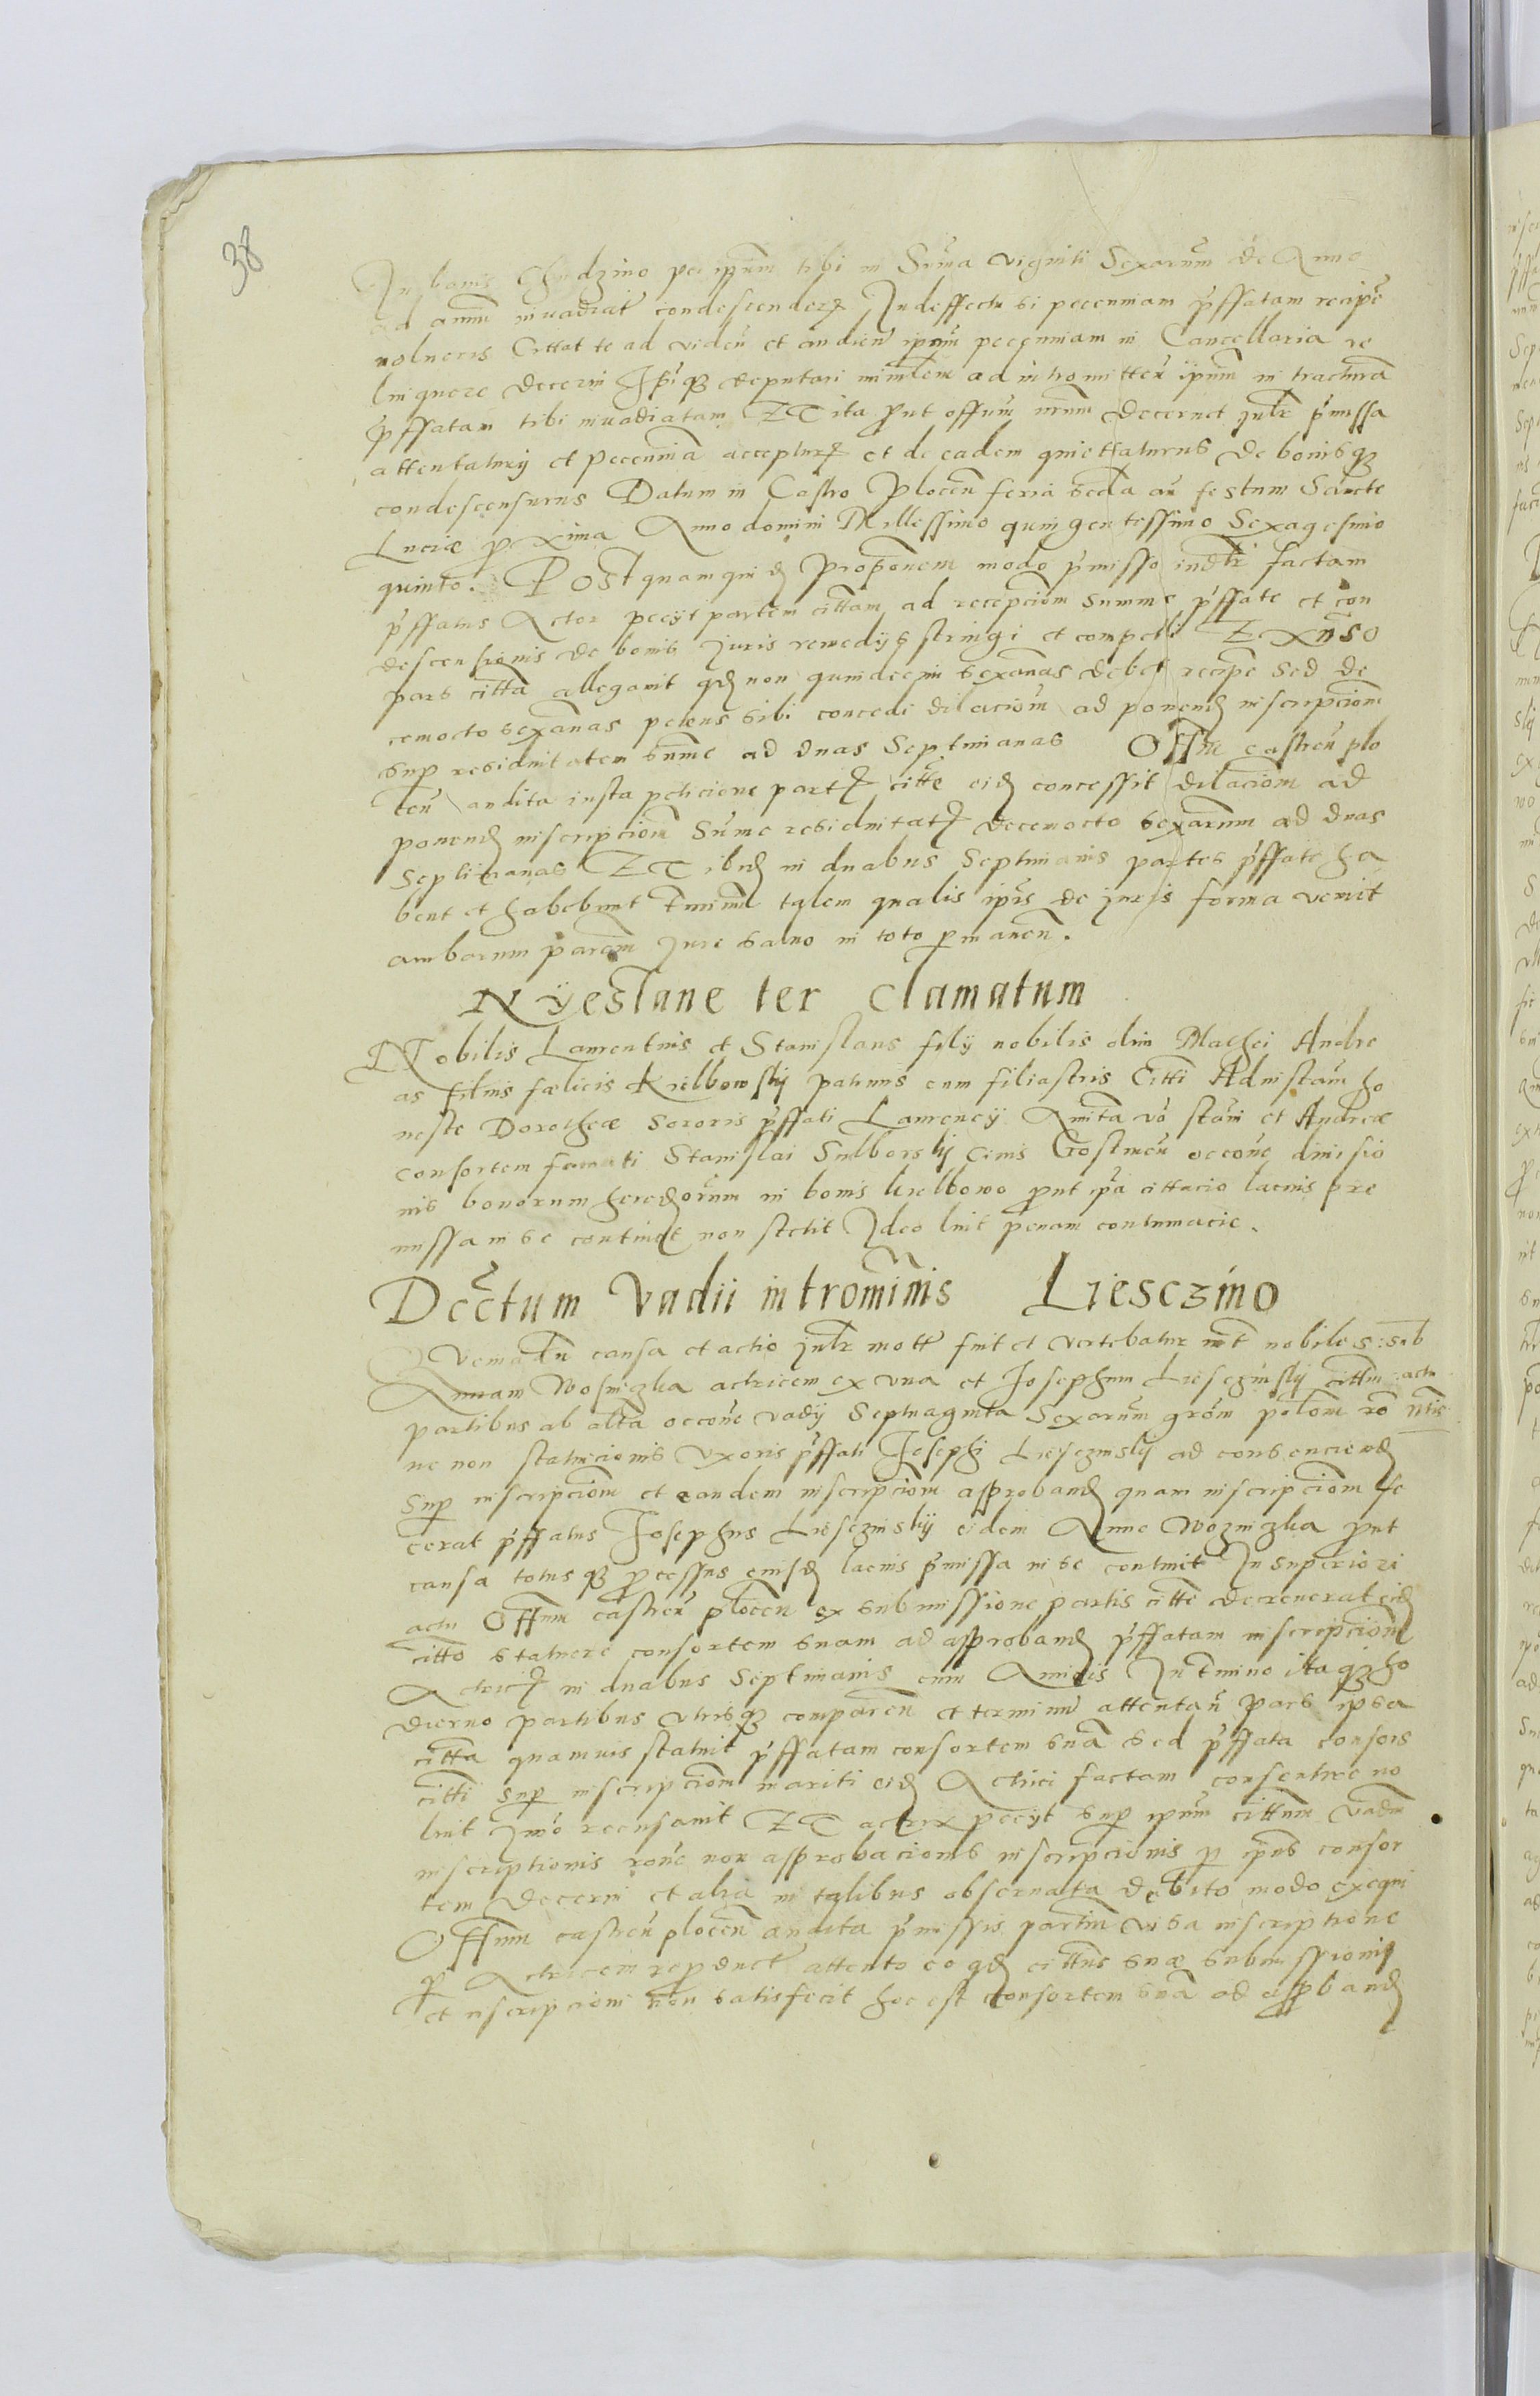 38
In bonis Chudzino per ipsum tibi in Suma viginti Sexarum de Anno
ad annum invadiat condescenderes Indeffectu si pecunniam pffatam recipe
nolueris Cittat te ad viden et audien ipsum pecunniam in Cancellaria re
linquere decerni deputari ministlem ad intromitten ipsum in
pffatam tibi invadiatam Et ita prout offum nrum decernet pmissa
attentaturus et pecunniam accepturus et de eadem quiettaturus de bonisq
condescensurus Datum in Castro Plocen feria secda an festum Sancte
Luciæ proxima Anno domini Millessimo quingentessimo Sexagesimo
quinto. Postquamquid Proponem modo pmisso factam
pffatus Actor peciyt partem cittam ad recepciom Summe pffate et con
descensionis de bonis Juris remedijs stringi et compelli Ex
pars citta allegavit qd non quindecim sexanas debet recipe sed de
cemocto sexanas petens sibi concedi dilaciom ad ponend inscripciom
sup residuitatem summe ad duas Septimanas Offm castren plo
cen audita iusta peticione partis citte eid concessit dilaciom ad
ponend inscripciom Sume residuitatis decemocto sexarum ad duas
Septimanas Et ibid in duabus Septimanis partes pffate ha
bent et habebunt tminum talem qualis ipsis de juris forma venit
ambarum parcium Jure salvo in toto pmanen.
Nyestane ter clamatum
Nobilis Laurentius et Stanislaus filij nobilis olim Mathei Andre
as filius fœlicis Kielbowskij patruus cum filiastris Citti Ad instam ho
neste Dorotheæ Sororis pffati Laurencij Amita vo stani et Andreæ
consortem famati Stanislai Sulborskij Civis Gostinen occone divisio
nis bonorum heredorum in bonis kielbowo prout ipa cittacio lacius pre
missa in se continet non stetit Ideo luit penam contumacie.
Dectum Vadii introminis Liesczino
Quematm causa et actio mott fuit et vertebatur int nobiles
Annam Woszniczka actricem ex una et Josephum Liesczinskij cittm
partibus ab alta occone vadij Septuaginta Sexarum grom polom
ne non statuicionis Uxoris pffati Josephi Liesczinskij ad consenciend
Sup inscripciom et eandem inscripciom approband quam inscripciom fe
cerat pffatus Josephus Liesczinskij eidem Anne Wozniczka prout
causa totusq processus eiusd lacius pmissa in se continet In superiori
actu Offm castren plocen ex submissione partis citte decreverat eid
citto statuere consortem suam ad approband pffatam inscripciom
Actrici in duabus Septimanis cum Amicis In tmino itaq ho
dierno partibus utrisq comparen et terminum attentan Pars ipsa
citta quamvis statuit pffatam consortem suam sed pffata consors
citti sup inscripciom mariti eid Actrici factam consentire no
luit Imo recusavit Et actrix peciyt sup ipsum cittum vadm
inscriptionis rone non approbacionis inscripcionis p ipius consor
tem decerni et alia in talibus observata debito modo exequi
Offm castren plocen audita pmissis partium visa inscriptione
p Actricem reproduct attento eo qd cittus suæ submissionis
et inscripcioni non satisfecit hoc est consortem suam ad approband